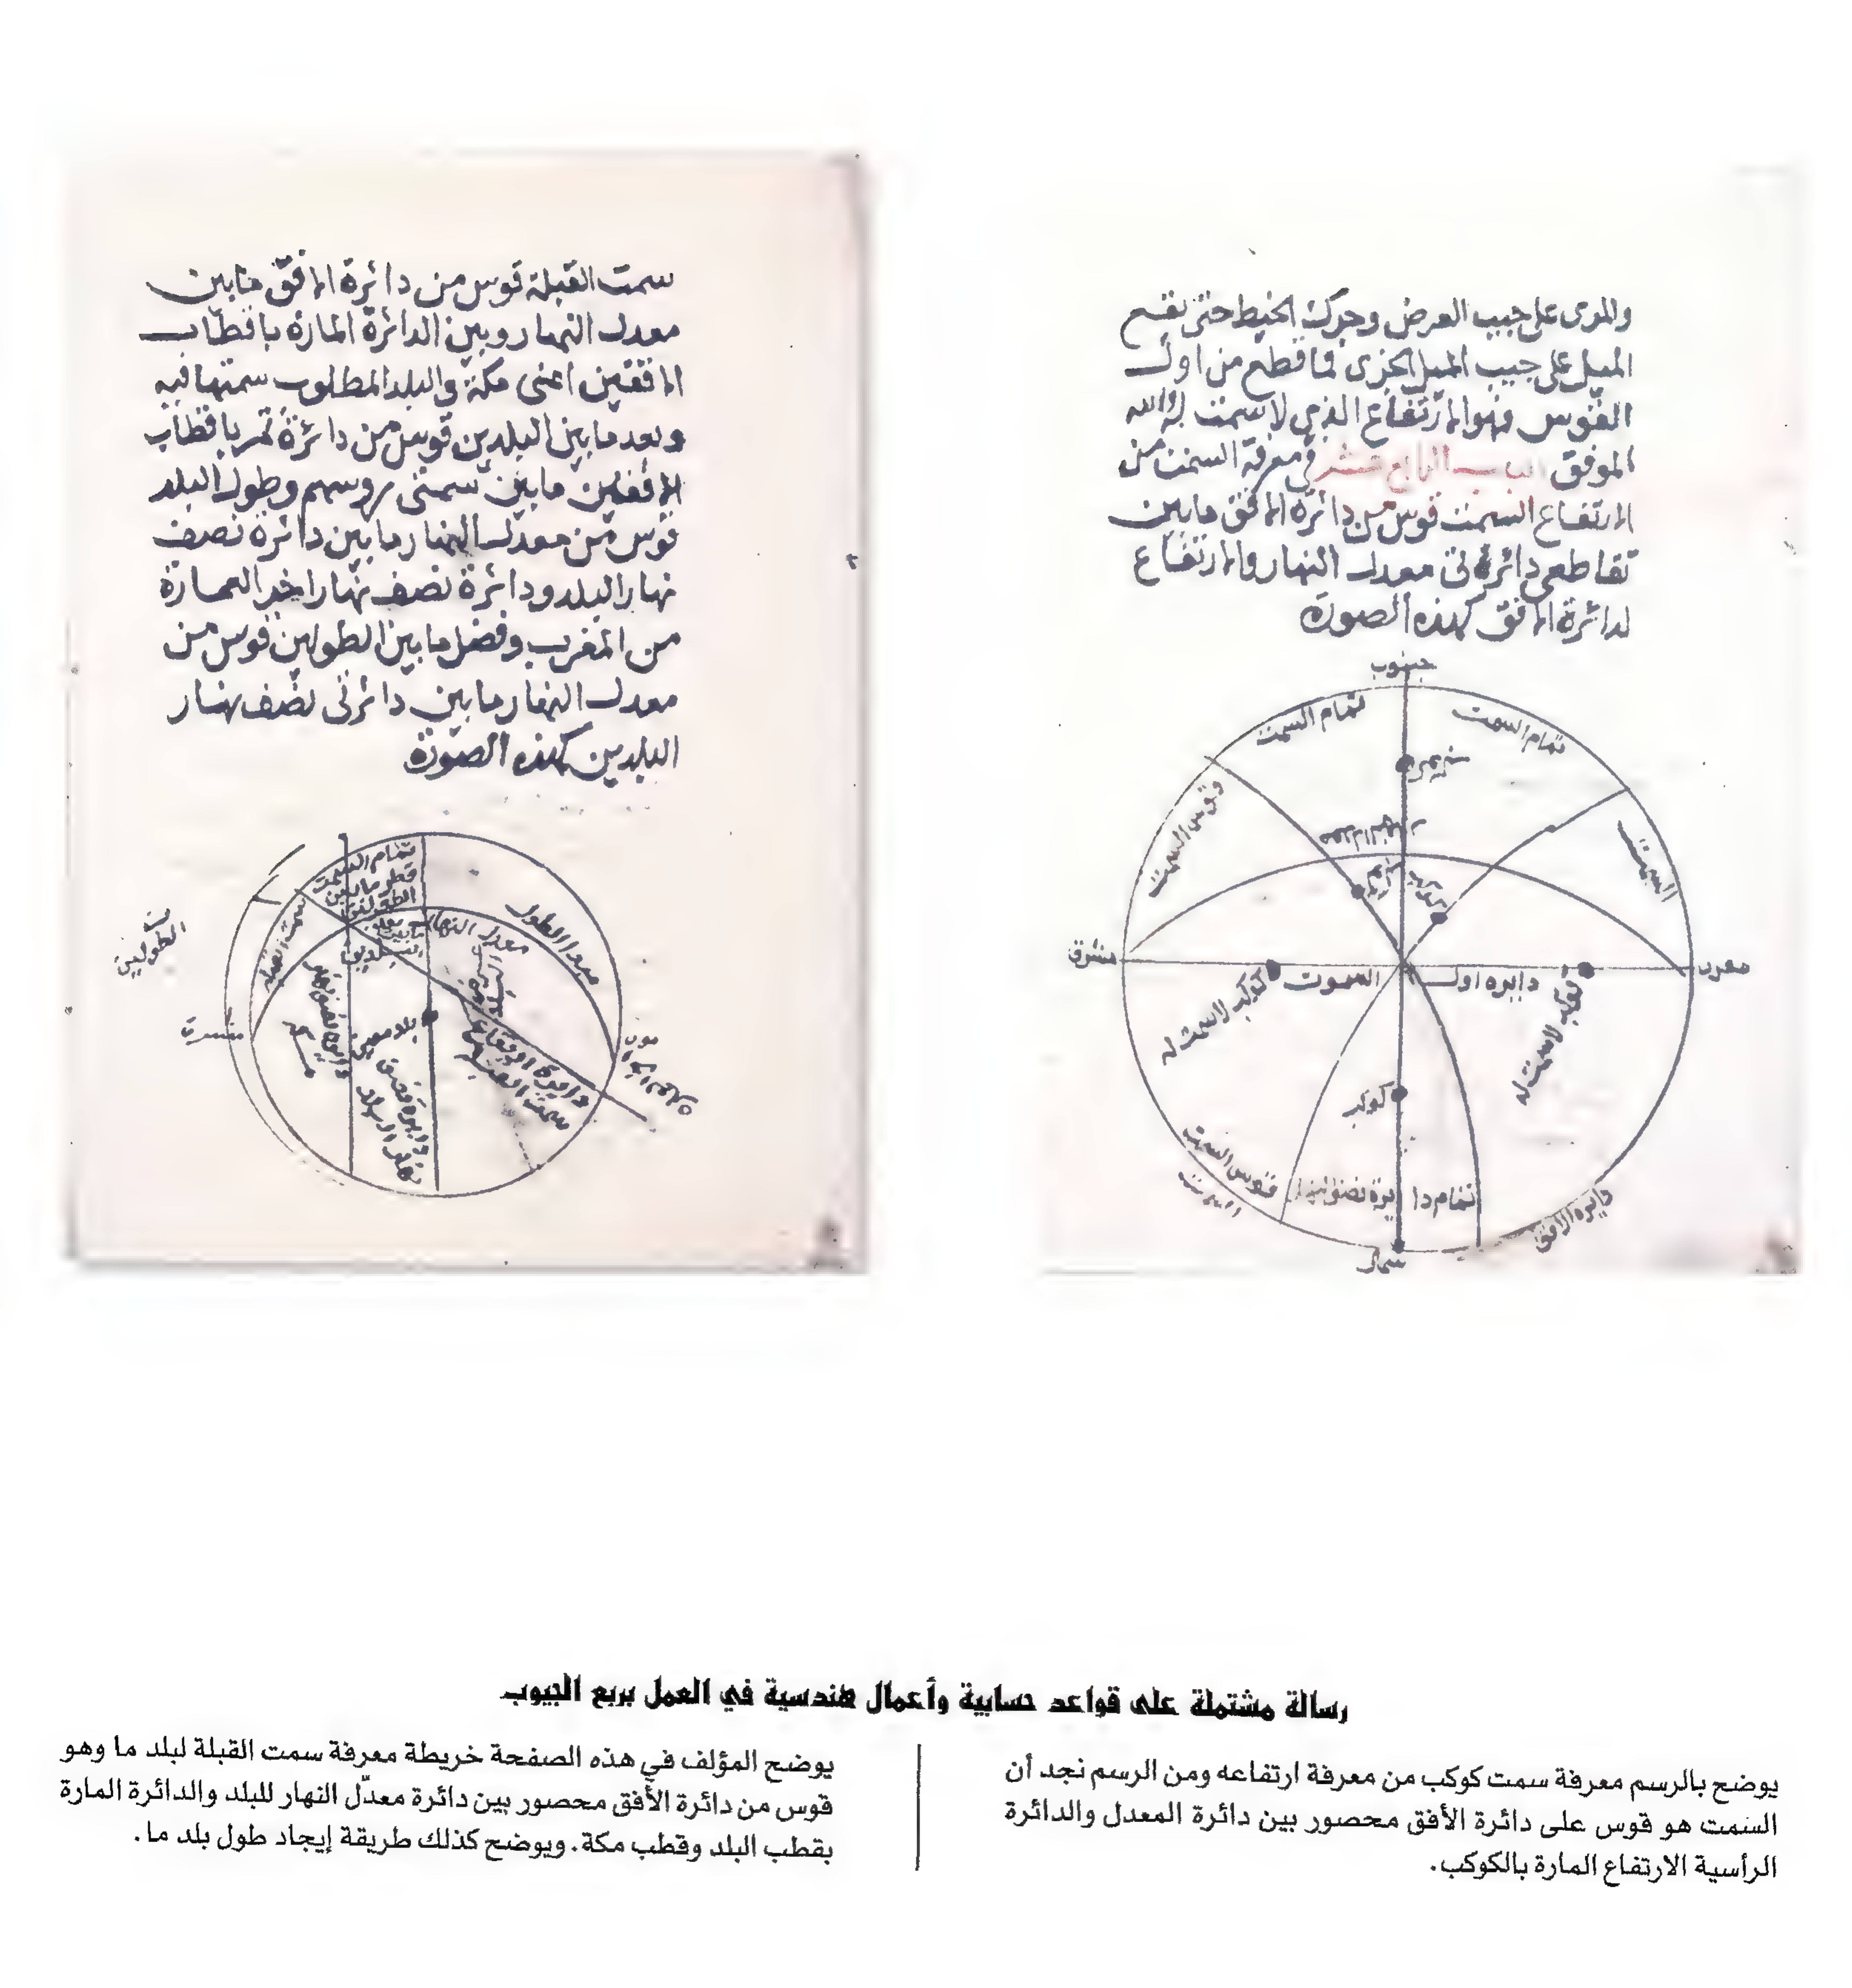 والمرى على جيب العرض وحرك الخيط حتى يقع
الميل على جيب الميل الجزى فما قطع من اول
القوس فهو الارتفاع الذي لا سمت له والله
الموفق الباب الرابع عشر في معرفة السمت من
الارتفاع السمت قوس من دائرة الافق ما بين
تقاطعى دائرتى معدل النهار والارتفاع
لدائرة الافق كهذه الصورة
جنوب
تمام السمت
تمام السمت
قوس السمت
السمت
معدل النهار
كوكب
مشرق
مغرب
دايره اول
السموت
كوكب لاسمت له
كوكب لاسمت له
كوكب
قوس السمت
السمت
تمام دا
يرة نصف النهار
دايرة الافق
شمال
سمت القبلة قوس من دائرة الافق ما بين
معدل النهار وبين الدائرة المارة باقطاب
الافقين اعنى مكة والبلد المطلوب سمتها فيه
وبعد ما بين البلدين قوس من دائرة تمر باقطاب
الافقين ما بين سمتى روسهم وطول البلد
قوس من معدل النهار ما بين دائرة نصف
نهار البلد ودائرة نصف نهار اخر العمارة
من المغرب وفضل ما بين الطولين قوس من
معدل النهار ما بين دائرتى نصف نهار
البلدين كهذه الصورة
تمام السمت
ما بين
سمت القبلة
معدل النهار
مبدا الطول
الطولين
مشرق
بلد
دايرة ارتفاع
سمت القبلة
دايرة نصف
نهار البلد
رسالة مشتملة على قواعد حسابية وأعمال هندسية في العمل بربع الجيوب
يوضح بالرسم معرفة سمت كوكب من معرفة ارتفاعه ومن الرسم نجد أن
السمت هو قوس على دائرة الأفق محصور بين دائرة المعدل والدائرة
الرأسية الارتفاع المارة بالكوكب.
يوضح المؤلف في هذه الصفحة خريطة معرفة سمت القبلة لبلد ما وهو
قوس من دائرة الأفق محصور بين دائرة معدّل النهار للبلد والدائرة المارة
بقطب البلد وقطب مكة. ويوضح كذلك طريقة إيجاد طول بلد ما.